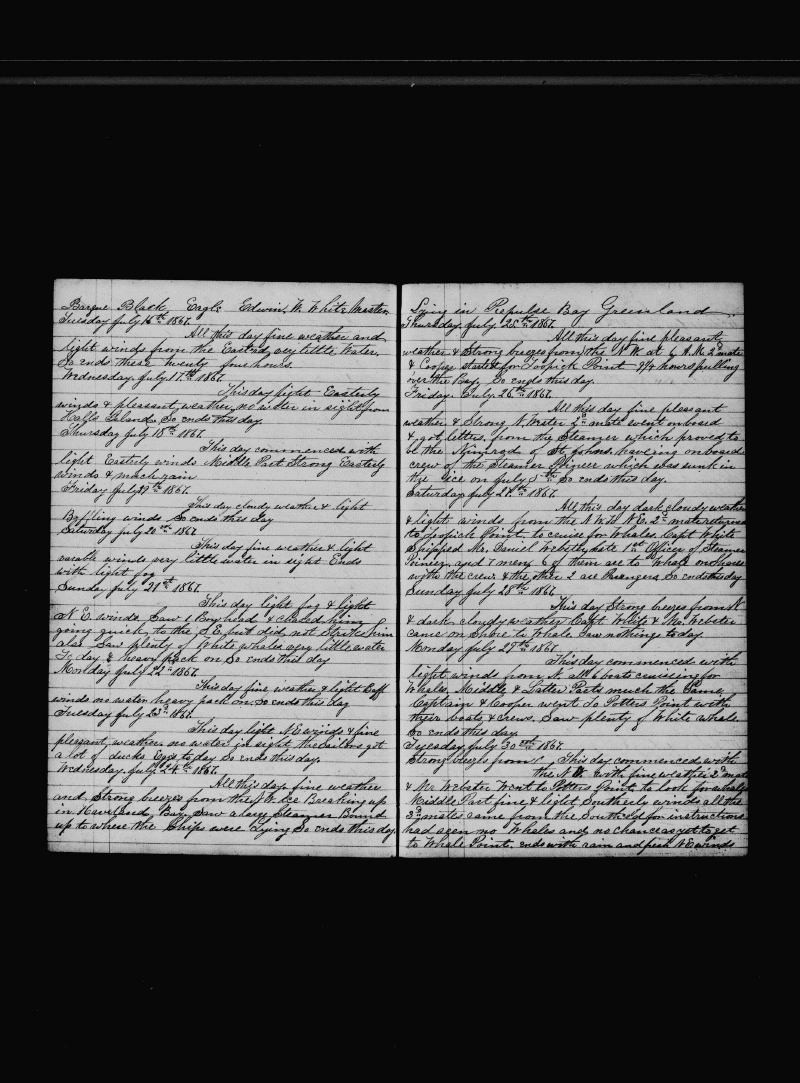 Barque Black Eagle Edwin. W. White Master
Tuesday July 16th 1867.
All this day fine weather and
light winds from the Eastrd, very little Water,
So ends these twenty four hours.
Wednesday July 17th 1867.
This day light Easterly
winds & pleasant weather, no water in sight from
Halls Island So ends this day.
Thursday July 18th 1867.
This day commenced with
light Easterly winds Middle Part Strong Easterly
winds & much rain
Friday July 19th 1867.
This day cloudy weather & light
Baffling winds So ends this day
Saturday July 20th 1867
This day fine weather & light
varable winds very little water in sight Ends
with light fog
Sunday July 21st 1867.
This day light fog & light
N E. winds, Saw 1 Bowhead & chased him
going quick, to the S E, but did not Strike him
also Saw plenty of White whales very little water
To day & heavy pack on So ends this day
Monday July 22nd 1867.
This day fine weather & light Baff
winds no water heavy pack on. So ends this day
Tuesday July 23rd 1867.
This day light N E winds & fine
pleasant weather no water in sight, the Sailors got
a lot of ducks Eggs to day So ends this day.
Wednesday July 24th 1867.
All this day fine weather
and Strong breezes from the N. W. Ice Breaking up
in Haveland Bay, Saw a large Steamer Bound
up to where the Ships were Lying So ends this day
Lying in Repulse Bay Greenland
Thursday July 25th 1867.
All this day fine pleasant
weather & Strong breezes from the N. W. at 6 A.M. 2d mate
& Cooper started for Toopick Point 9¼ hours pulling
over the Bay, So ends this day.
Friday July 26th 1867.
All this day fine pleasant
weather & Strong N. Water 2d mate went onboard
& got letters, from the Steamer which proved to
be the Nimrod of St Johns. haveing onboard
crew of the Steamer Pioneer which was sunk in
the ice on July 5th So ends this day.
Saturday July 27th 1867.
All this day dark cloudy weather
& light winds from the N W to N E. 2d mate returned
to Toopick Point, to cruise for Whales, Capt White
Shipped Mr. Daniel Webster, late 1st Officer of Steamer
Pioneer, and 7 men, 6 of them are to Whale on shares
with the crew & the other 2 are Passengers, So ends this day
Sunday July 28th 1867
This day Strong breezes from N
& dark cloudy weather Capt. White & Mr. Webster
came on Shore to Whale Saw nothing to day.
Monday July 29th 1867
This day commenced with
light winds from N. all 6 boats cruiseing for
Whales, Middle & Latter Parts much the Same
Captain & Cooper went To Potters Point with
their boats & crews. Saw plenty of White whale
So ends this day.
Tuesday July 30th 1867.
Strong breezes from This day commenced with
the N. W. with fine weather 2d mate
& Mr Webster Went to Potters Point, to look for whales
Middle Part fine & light Southerly winds all the
3d mates came from the Southrd for instructions
had seen no Whales and no chance as yet to get
to Whale Point. ends with rain and fresh N E winds